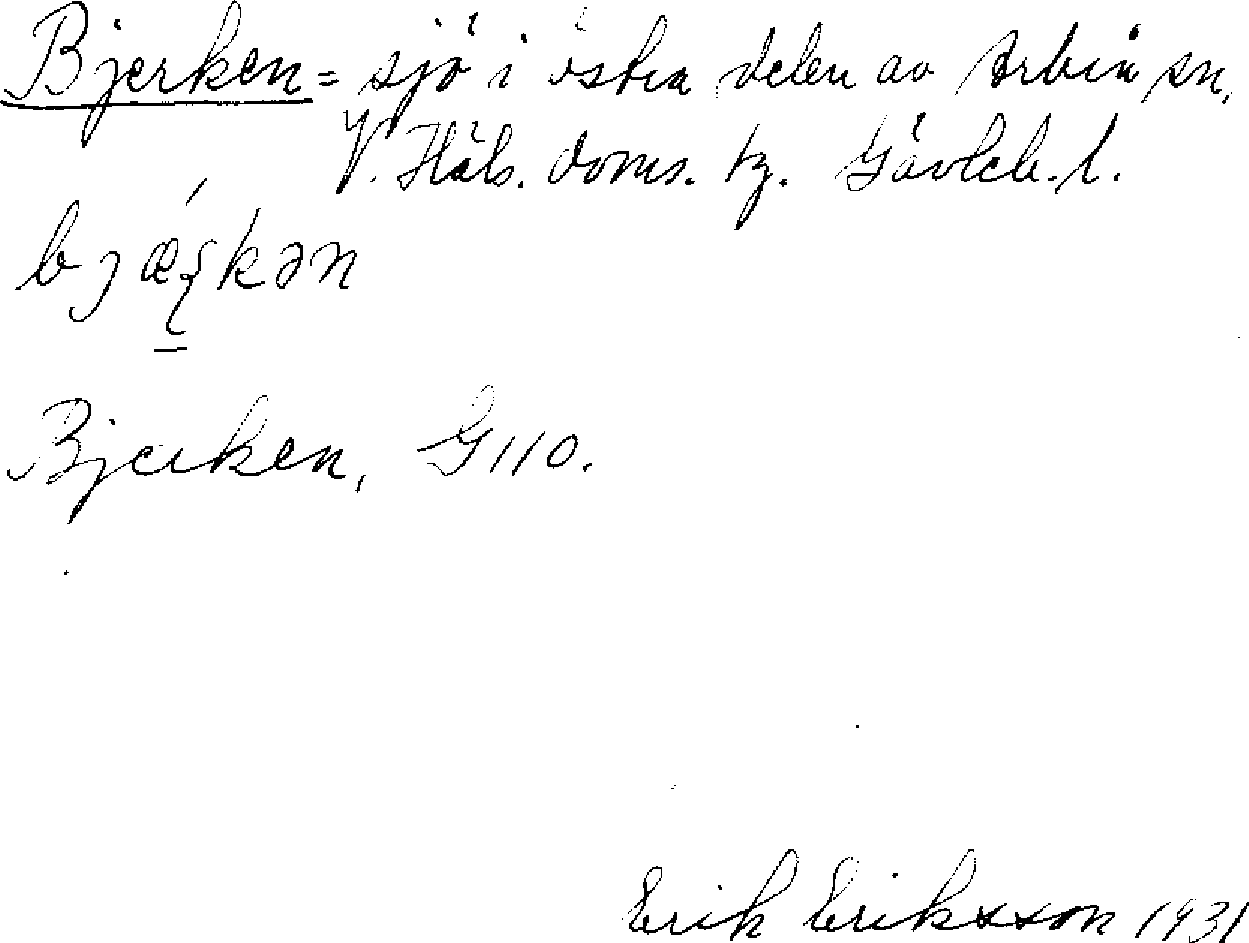 Bjerken = sjö i östra delen av Arbrå sn,
V. Häls. doms. tg. Gävleb. l.
bjæ̨kən
Bjerken, G110.
Erik Eriksson 1931